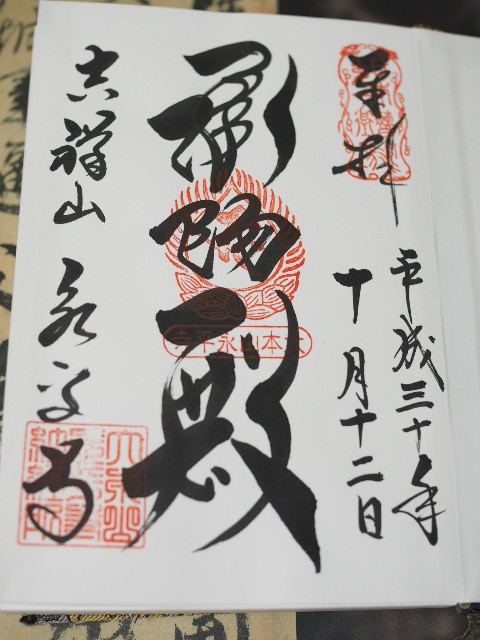 奉拝
平成三十年
十月十二日
承陽殿
大本山永平寺
吉祥山 永平寺